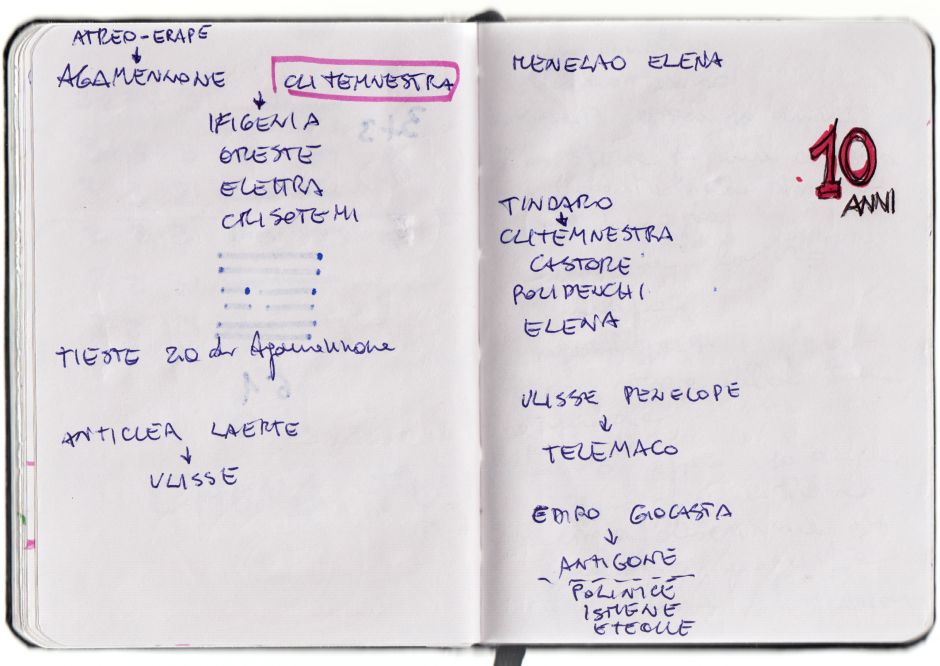 ATREO-ERAPE
AGAMENNONE CLITEMNESTRA
IFIGENIA
ORESTE
ELETTRA
CRISOTEMI
TIESTE zio di Agamennone
ANTICLEA LAERTE
ULISSE
MENELAO ELENA
10
ANNI
TINDARO
CLITEMNESTRA
CASTORE
POLIDEUCHI
ELENA
ULISSE PENELOPE
TELEMACO
EDIPO GIOCASTA
ANTIGONE
POLINICE
ISMENE
ETEOCLE